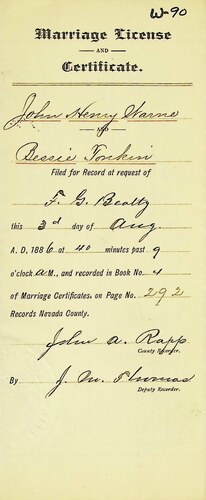 W-90
Marriage License
AND
Certificate.
John Henry Warne
AND
Bessie Tonkin
Filed for Record at request of
F. G. Beatty
this 3d day of Aug.
A. D. 1886 at 40 minutes past 9
o'clock A M., and recorded in Book No. 4
of Marriage Certificates, on Page No. 292
Records Nevada County.
John A. Rapp
County Recorder.
By J. M. Thomas
Deputy Recorder.